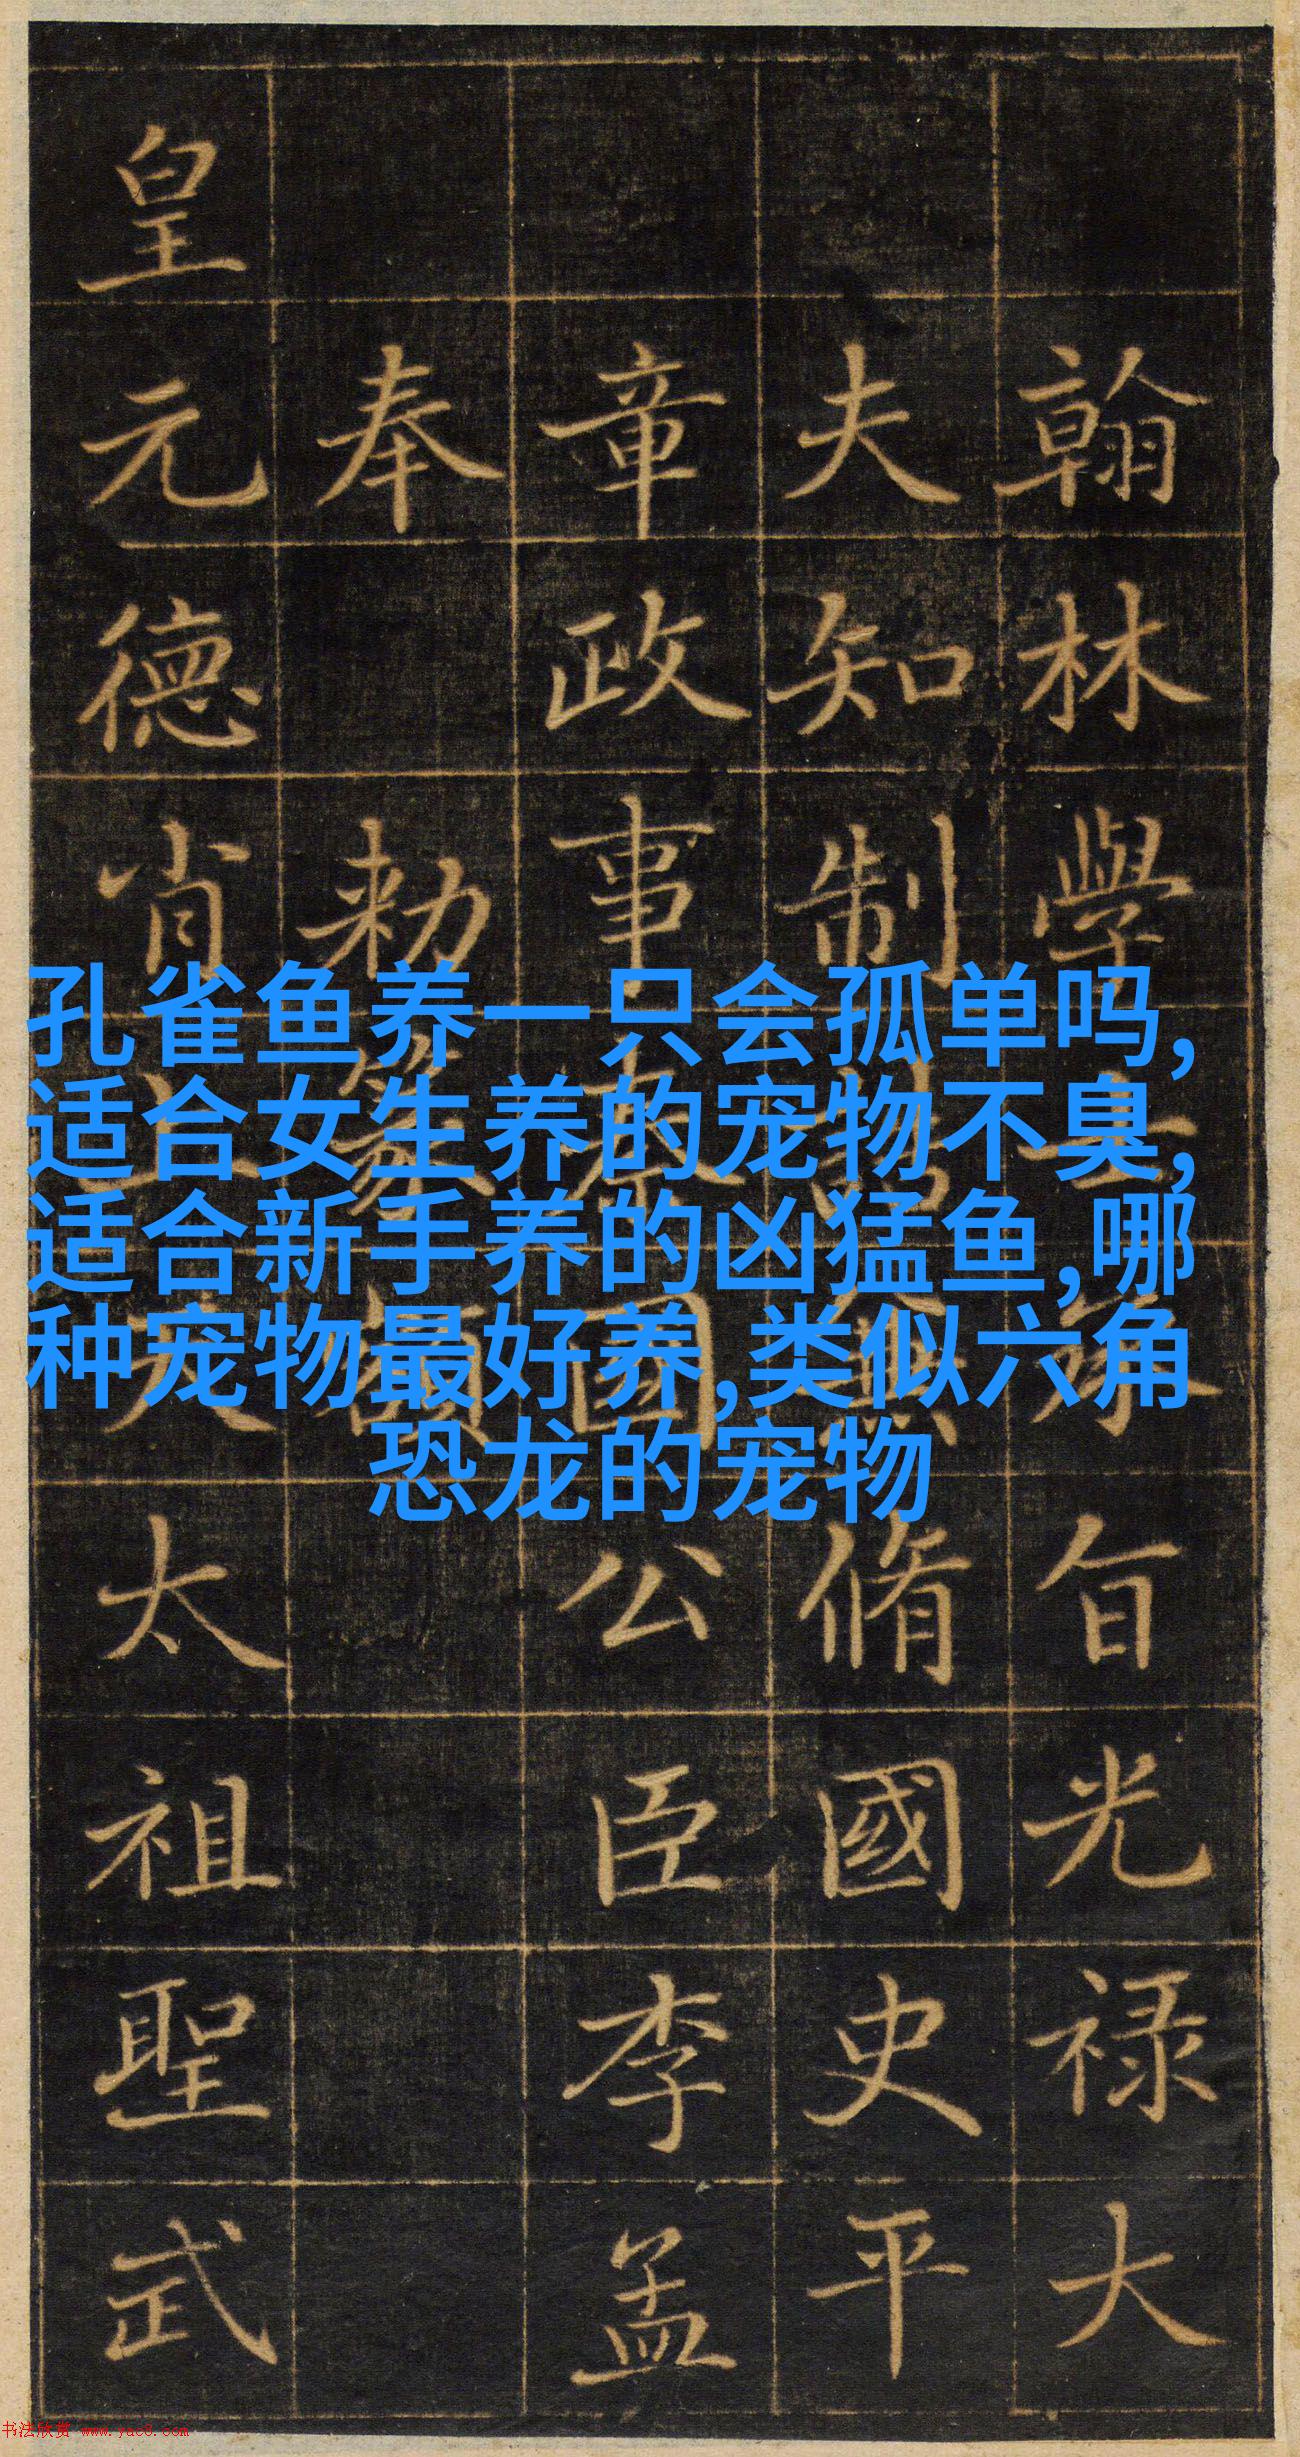 翰林學士承旨光禄大
夫知制誥兼脩國史平
章政事秦國公臣李孟
奉勑篆額
皇元德肖上天太祖聖武
孔雀鱼养一只会孤单吗,
适合女生养的宠物不臭,
适合新手养的凶猛鱼,哪
种宠物最好养,类似六角
恐龙的宠物
书法欣赏 www.yac8.com